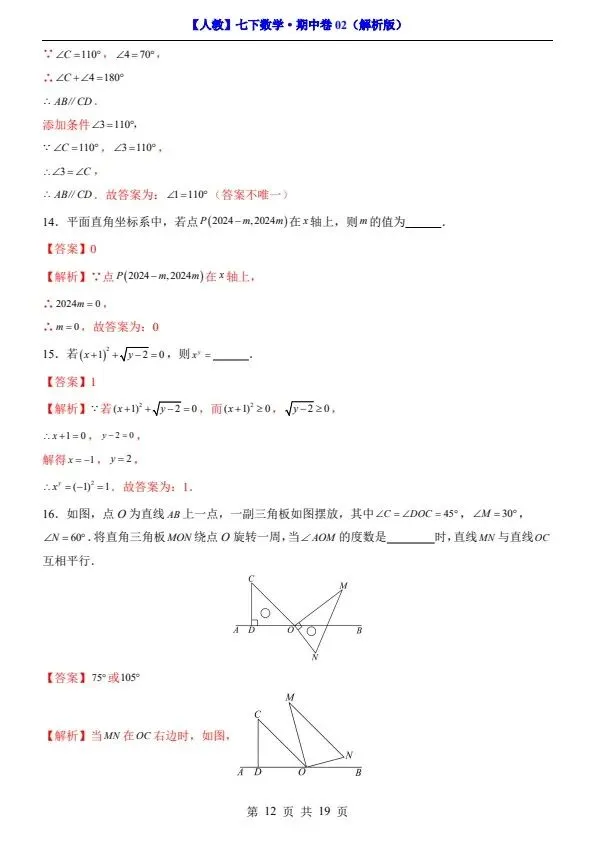 【人教】七下数学·期中卷 02（解析版）
∵ ∠C=110°，∠4=70°，
∴ ∠C+∠4=180°
∴ AB// CD．
添加条件∠3=110°，
∵ ∠C=110°，∠3=110°，
∴∠3=∠C，
∴ AB// CD．故答案为：∠1=110°（答案不唯一）
14．平面直角坐标系中，若点P(2024−m,2024m)在x轴上，则m的值为______．
【答案】0
【解析】∵点P(2024−m,2024m)在x轴上，
∴2024m=0，
∴m=0，故答案为：0
15．若(x+1)²+√y−2=0，则xʸ=______．
【答案】1
【解析】∵若(x+1)²+√y−2=0，而(x+1)²≥0，√y−2≥0，
∴x+1=0，y−2=0，
解得x=−1，y=2，
∴xʸ=(−1)²=1．故答案为：1．
16．如图，点O为直线AB上一点，一副三角板如图摆放，其中∠C=∠DOC=45°，∠M=30°，
∠N=60°．将直角三角板MON绕点O旋转一周，当∠AOM的度数是________时，直线MN与直线OC
互相平行．
C
M
A D O B
N
【答案】75°或105°
M
C
【解析】当MN在OC右边时，如图，
N
A D O B
第 12 页 共 19 页